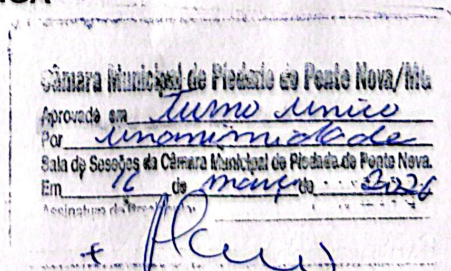 Câmara Municipal de Piedade de Ponte Nova/MG
Aprovado em turno único
Por unanimidade
Sala de Sessões da Câmara Municipal de Piedade de Ponte Nova.
Em de março de 2026
Assinatura do